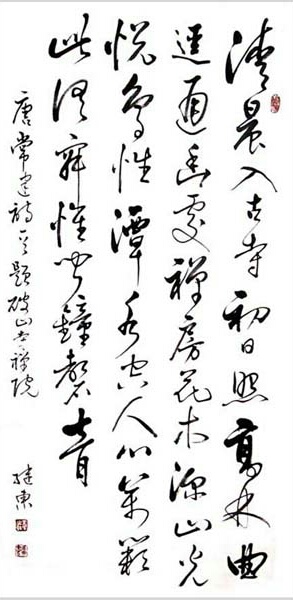 清晨入古寺初日照高林曲
逕通幽處禪房花木深山光
悦鳥性潭影空人心萬籟
此俱寂惟聞鐘磬音
唐常建詩一首題破山寺禪院
繼東